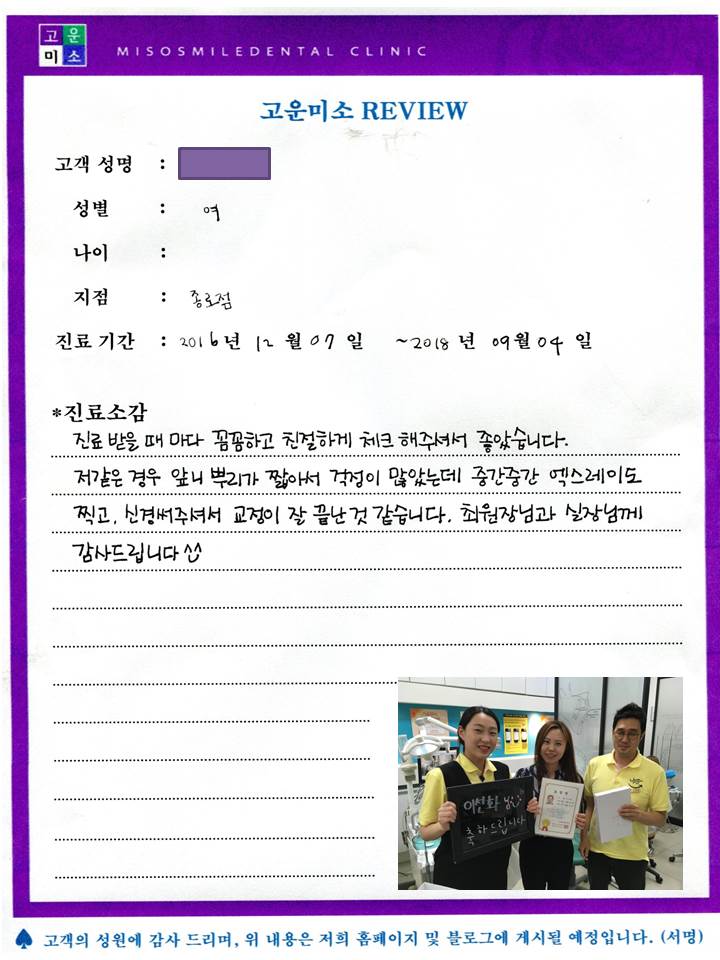 고운
미소
MISOSMILEDENTAL CLINIC
고운미소 REVIEW
고객 성명 :
성별 : 여
나이 :
지점 : 종로점
진료 기간 : 2016년 12월 07일 ~2018년 09월 04일
*진료소감
진료 받을 때 마다 꼼꼼하고 친절하게 체크 해주셔서 좋았습니다.
저같은 경우 앞니 뿌리가 짧아서 걱정이 많았는데 중간중간 엑스레이도
찍고, 신경써주셔서 교정이 잘 끝난것 같습니다. 최원장님과 실장님께
감사드립니다 ^^
축하드립니다
♠ 고객의 성원에 감사 드리며, 위 내용은 저희 홈페이지 및 블로그에 게시될 예정입니다. (서명)